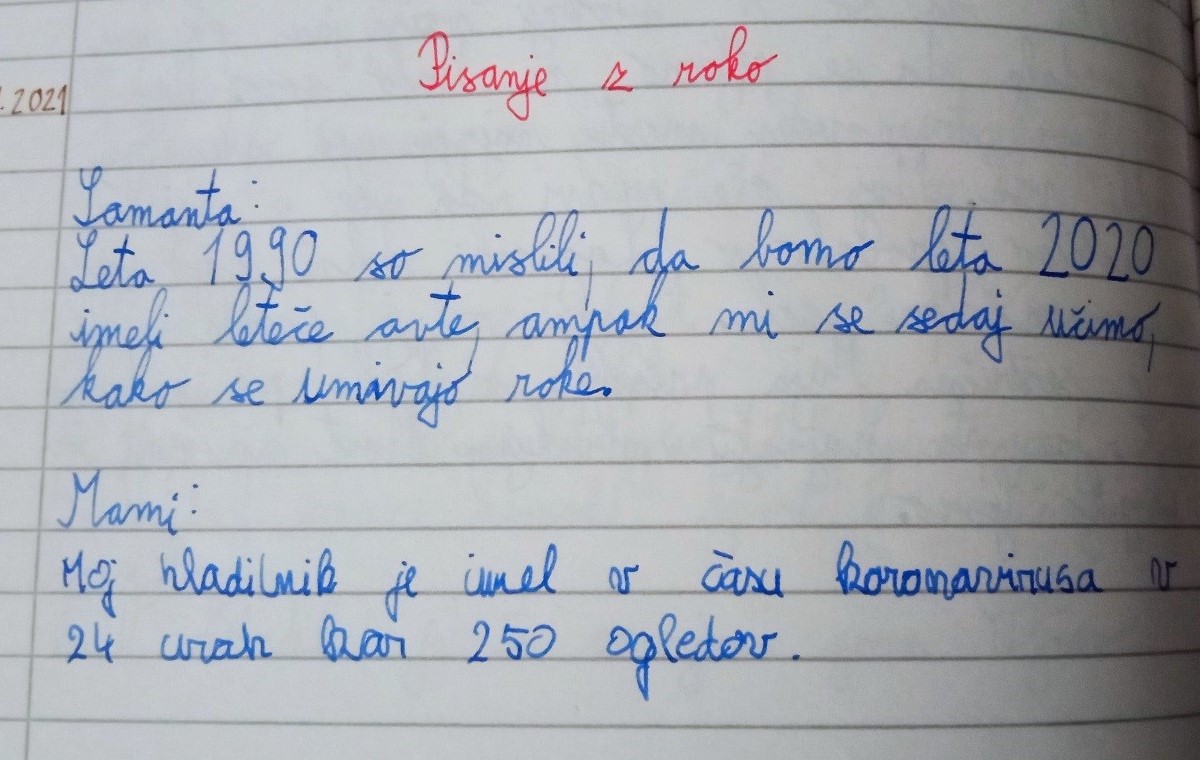 Pisanje z roko
.2021
Samanta:
Leta 1990 so mislili, da bomo leta 2020
imeli leteče avte, ampak mi se sedaj učimo,
kako se umivajo roke.
Mami:
Moj hladilnik je imel v času koronavirusa v
24 urah kar 250 ogledov.